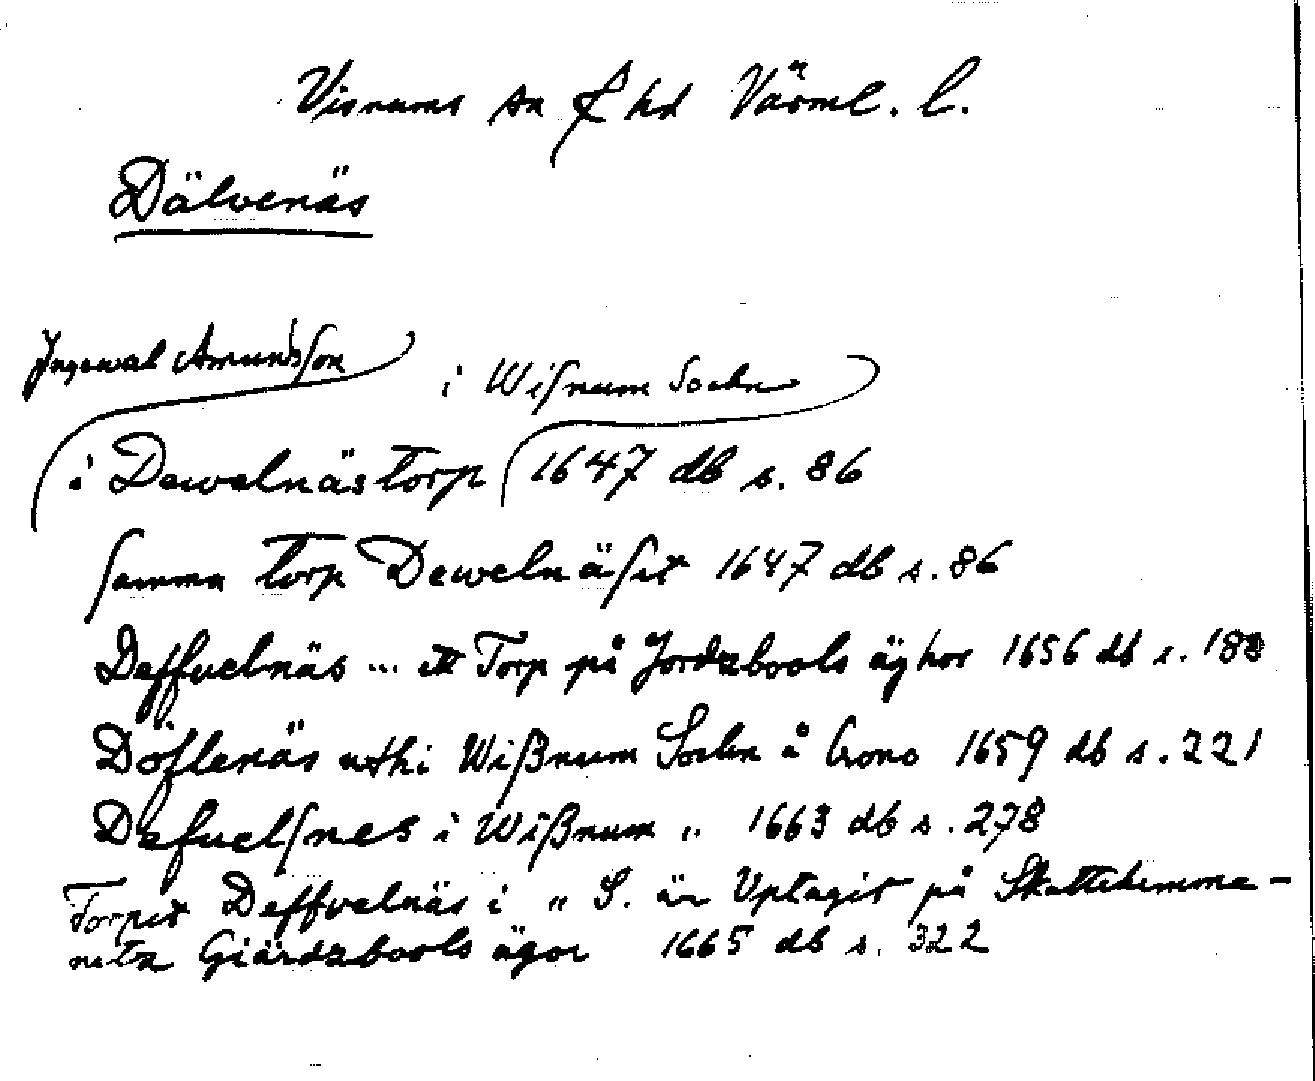 Visnums sn hd Värml. l.
Dälvenäs
Ingewal Amundsson
i Wisnum Sochn
i Dewelnästorp 1647 db s. 86
samma torp Dewelnäsit 1647 db s. 86
Deffuelnäs ... ett Torp på Jordzbools äghor 1656 db s. 188
Döflenäs uthi Wißnum Sochn å Crono 1659 db s. 221
Defuelsnes i Wißnum „ 1663 db s. 278
Torpet Deffvelnäs i „ S. är Vptagit på Skattehemma-
netz Giärdzbools ägor 1665 db s. 322